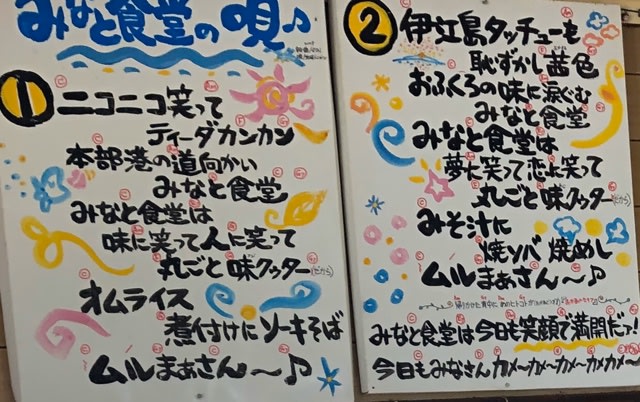 みなと食堂の唄♪
①ニコニコ笑って
ティーダカンカン
本部港の道向かい
みなと食堂
みなと食堂は
味に笑って人に笑って
丸ごと味クゥター(だから)
オムライス
煮付けにソーキそば
ムルまぁさん〜♪
②伊江島タッチューも
恥ずかし茜色
おふくろの味に涙ぐむ
みなと食堂
みなと食堂は
夢に笑って恋に笑って
丸ごと味クゥター(だから)
みそ汁に
焼ソバ焼めし
ムルまぁさん〜♪
みなと食堂は今日も笑顔で満開だっ!
今日もみなさんカメ〜カメ〜カメ〜カメカメ〜